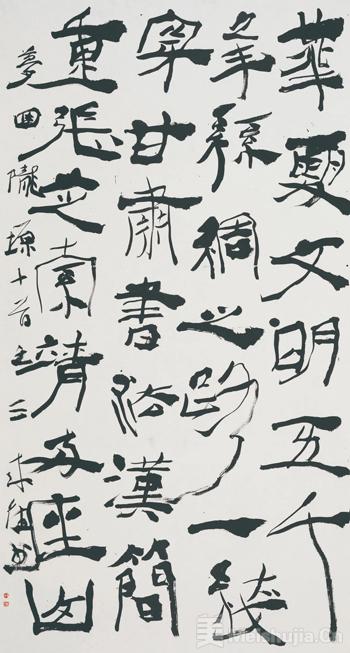 華夏文明五千
年絲綢之路一綫
穿甘肅書法漢簡
重張芝索靖两座山
夢回隴塬十首之
書
美 Meishujia.cn